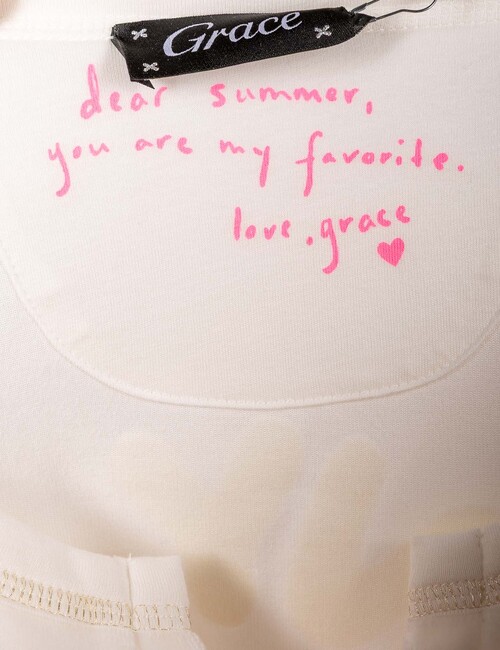 Grace
dear summer,
you are my favorite.
love.grace